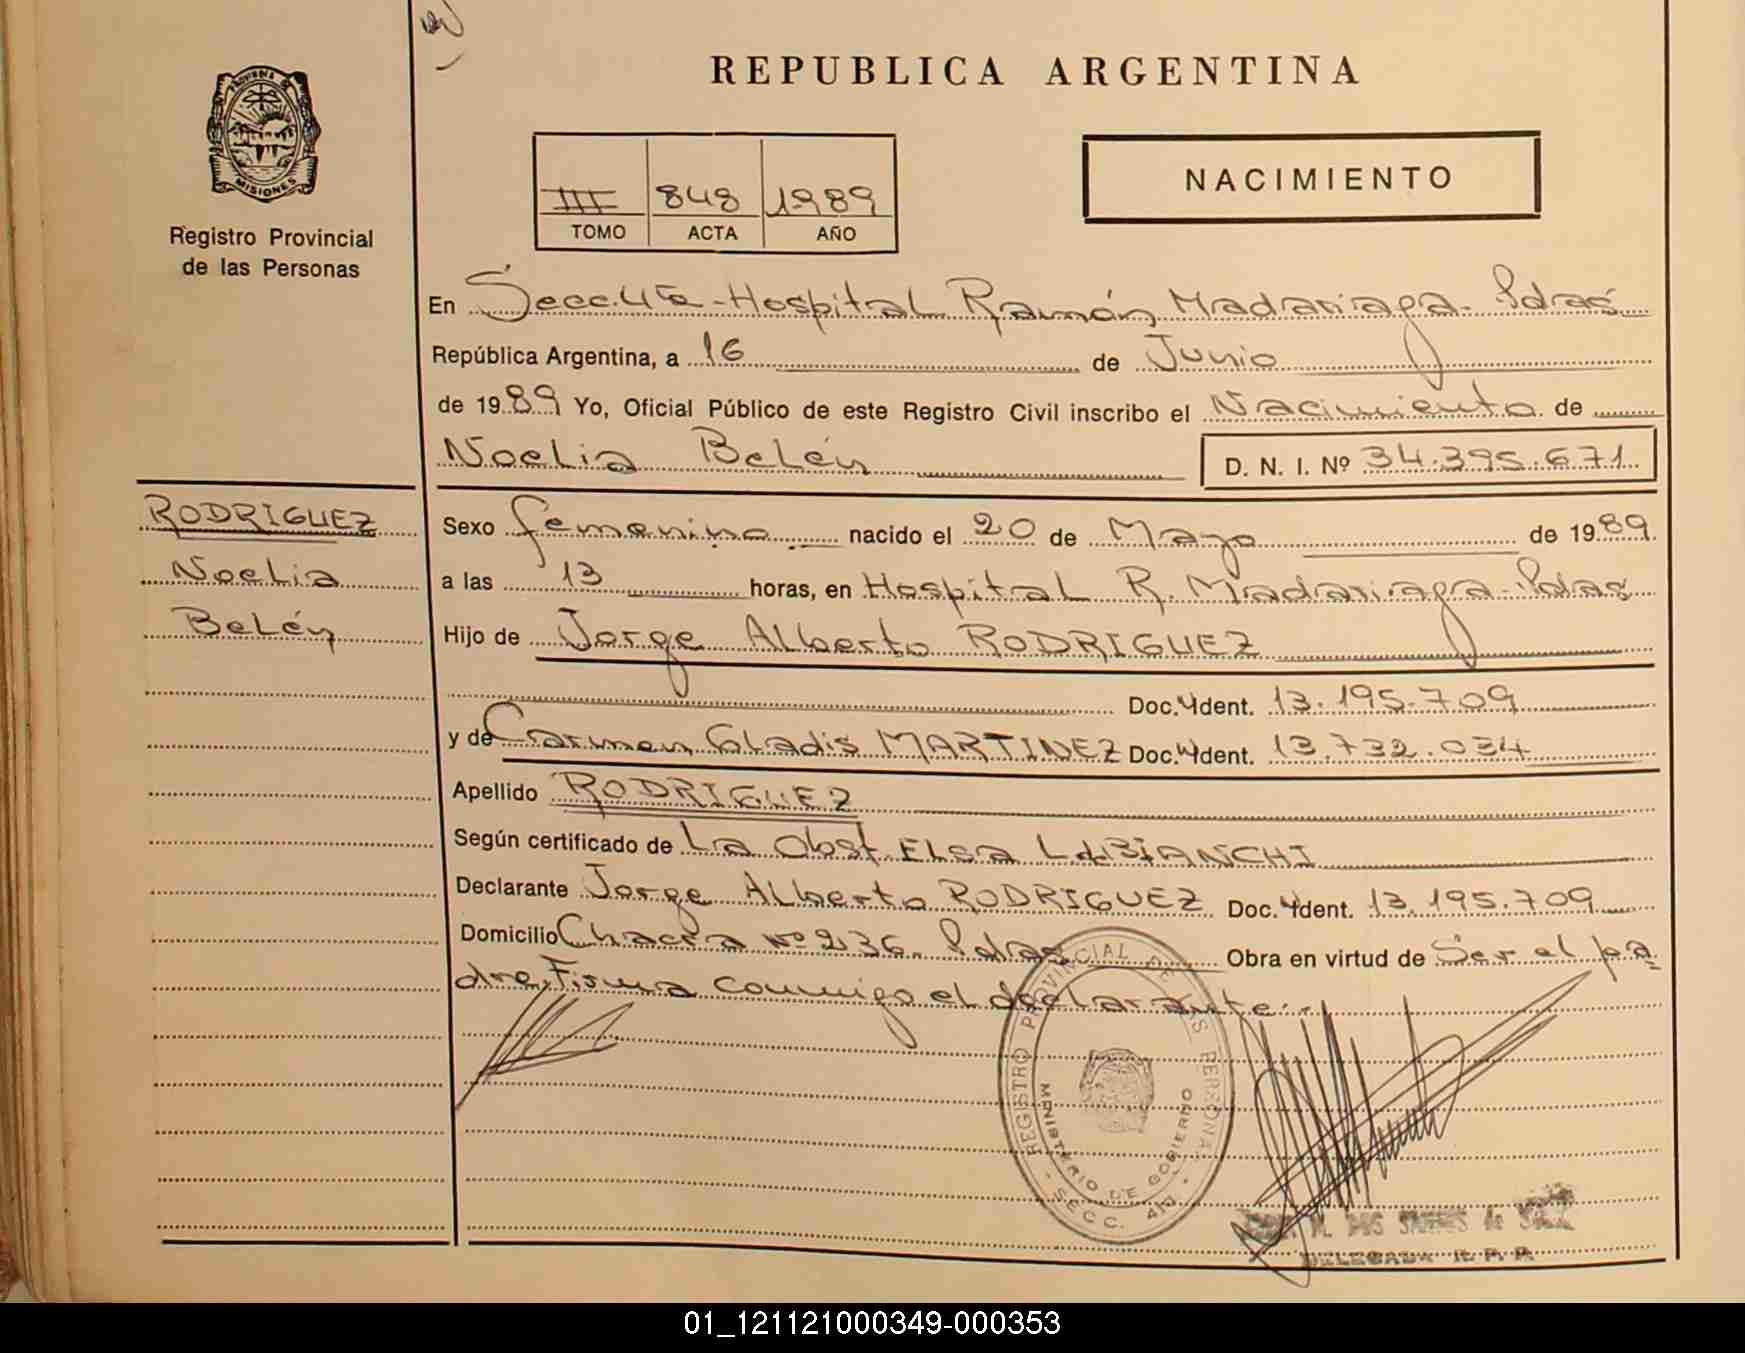 REPUBLICA ARGENTINA
PROVINCIA DE MISIONES
Registro Provincial
de las Personas
III 848 1989
TOMO ACTA AÑO
NACIMIENTO
En Secc. 4ta - Hospital Ramón Madariaga - Pdas
República Argentina, a 16 de Junio
de 1989 Yo, Oficial Público de este Registro Civil inscribo el Nacimiento de
Noelia Belén D. N. I. Nº 34.395.671
RODRIGUEZ
Noelia
Belén
Sexo femenino nacido el 20 de Mayo de 1989
a las 13 horas, en Hospital R. Madariaga - Pdas
Hijo de Jorge Alberto RODRIGUEZ
Doc. Ident. 13.195.709
y de Carmen Gladis MARTINEZ Doc. Ident. 13.732.034
Apellido RODRIGUEZ
Según certificado de La Obst. Elsa
Declarante Jorge Alberto RODRIGUEZ Doc. Ident. 13.195.709
Domicilio Chacra Nº 236. Pdas Obra en virtud de Ser el pa-
dre, Firma conmigo el declarante..
REGISTRO PROVINCIAL DE LAS PERSONAS
MINISTERIO DE GOBIERNO
SECC. 4ta
DELEGADA R. P. P.
01_121121000349-000353